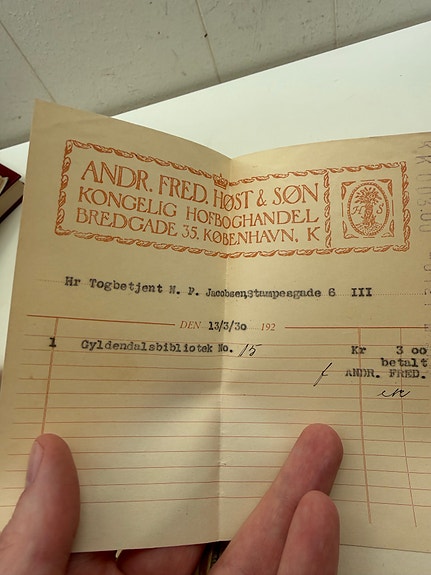 ANDR. FRED. HØST & SØN
KONGELIG HOFBOGHANDEL
BREDGADE 35, KØBENHAVN, K
H S
Hr Togbetjent N. P. Jacobsen, Stampesgade 6 III
DEN 13/3/30 192
1 Gyldendalsbibliotek No. 15 Kr 3 00
betalt
f ANDR. FRED.